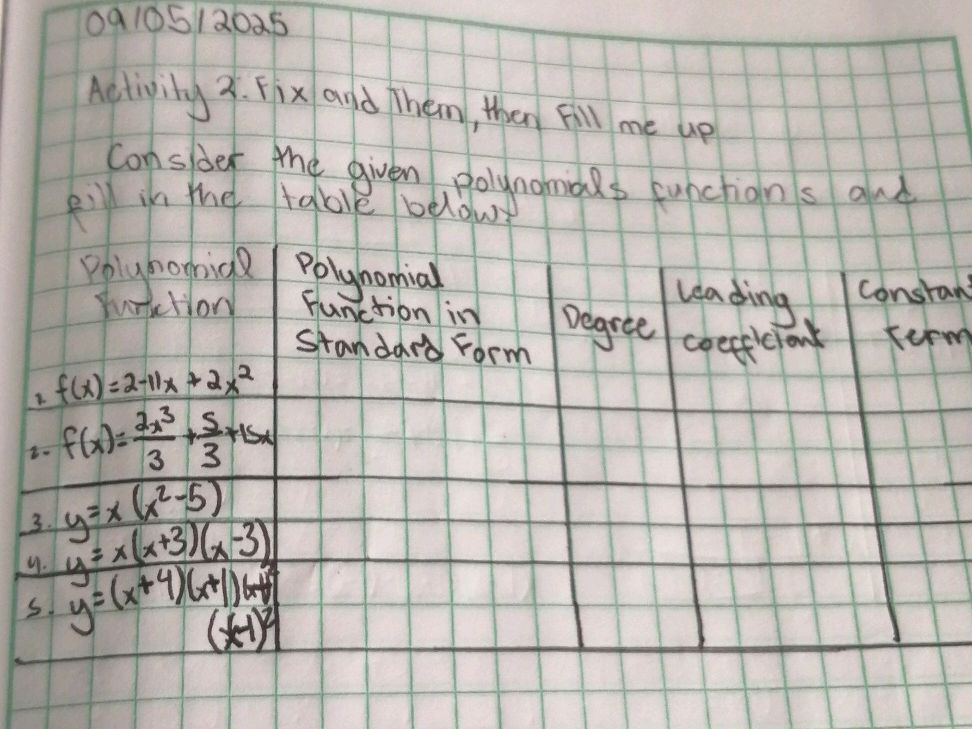 09/05/2025
Activity 2. Fix and Them, then Fill me up
Consider the given polynomials functions and
fill in the table below
Polynomial Function
Polynomial Function in Standard Form
Degree
Leading coefficient
Constant Term
1. f(x)=2-11x+2x²
2. f(x)=2x³/3+5/3+15x
3. y=x(x²-5)
4. y=x(x+3)(x-3)
5. y=(x+4)(x+1)
(x-1)²